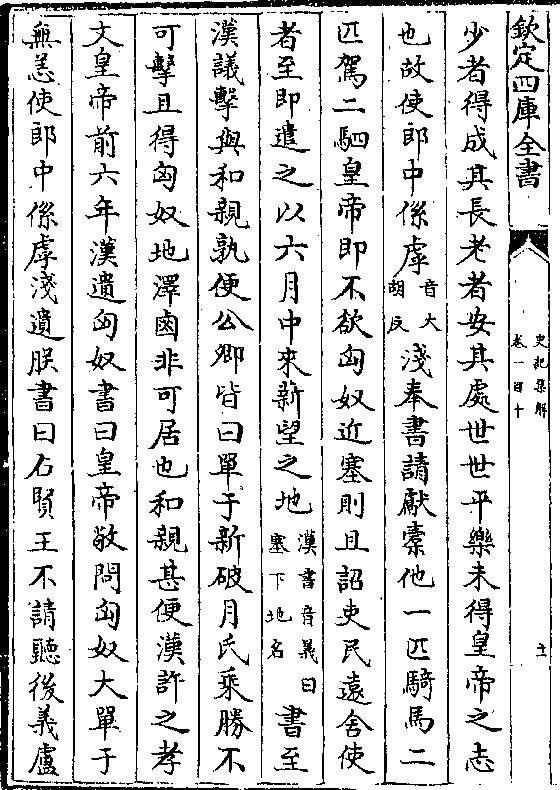 欽定四庫全書
史記集解
卷一百十
十
少者得成其長老者安其處世世平樂未得皇帝之志
也故使郎中係雩音火胡反淺奉書請獻橐他一匹騎馬二
匹駕二駟皇帝即不欲匈奴近塞則且詔吏民遠舍使
者至即遣之以六月中來新望之地漢書音義曰塞下地名書至
漢議擊與和親孰便公卿皆曰單于新破月氏乘勝不
可擊且得匈奴地澤鹵非可居也和親甚便漢許之孝
文皇帝前六年漢遺匈奴書曰皇帝敬問匈奴大單于
無恙使郎中係雩淺遺朕書曰右賢王不請聽後義盧